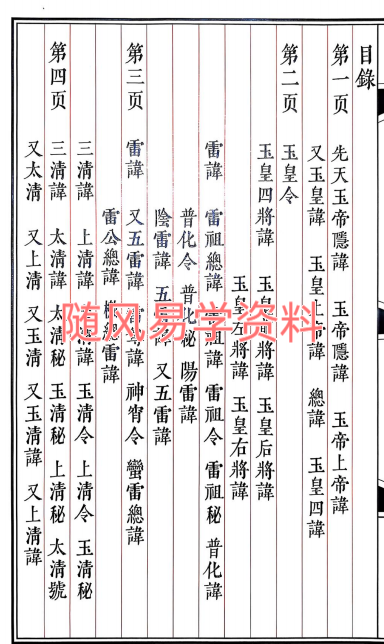 目錄
第一页 先天玉帝隱諱 玉帝隱諱 玉帝上帝諱
又玉皇諱 玉皇上帝諱 總諱 玉皇四諱
第二页 玉皇令
玉皇四將諱 玉皇前將諱 玉皇后將諱
玉皇左將諱 玉皇右將諱
雷諱 雷祖總諱 雷祖諱 雷祖令 雷祖秘 普化諱
普化令 普化秘 陽雷諱
陰雷諱 五雷諱 又五雷諱
第三页 雷諱 又五雷諱 雷諱 神霄令 蠻雷總諱
雷公總諱 總雷諱
三清諱 上清諱 諱 玉清令 上清令 玉清秘
第四页 三清諱 太清諱 太清秘 玉清秘 上清秘 太清號
又太清 又上清 又玉清 又玉清諱 又上清諱
随风易学资料